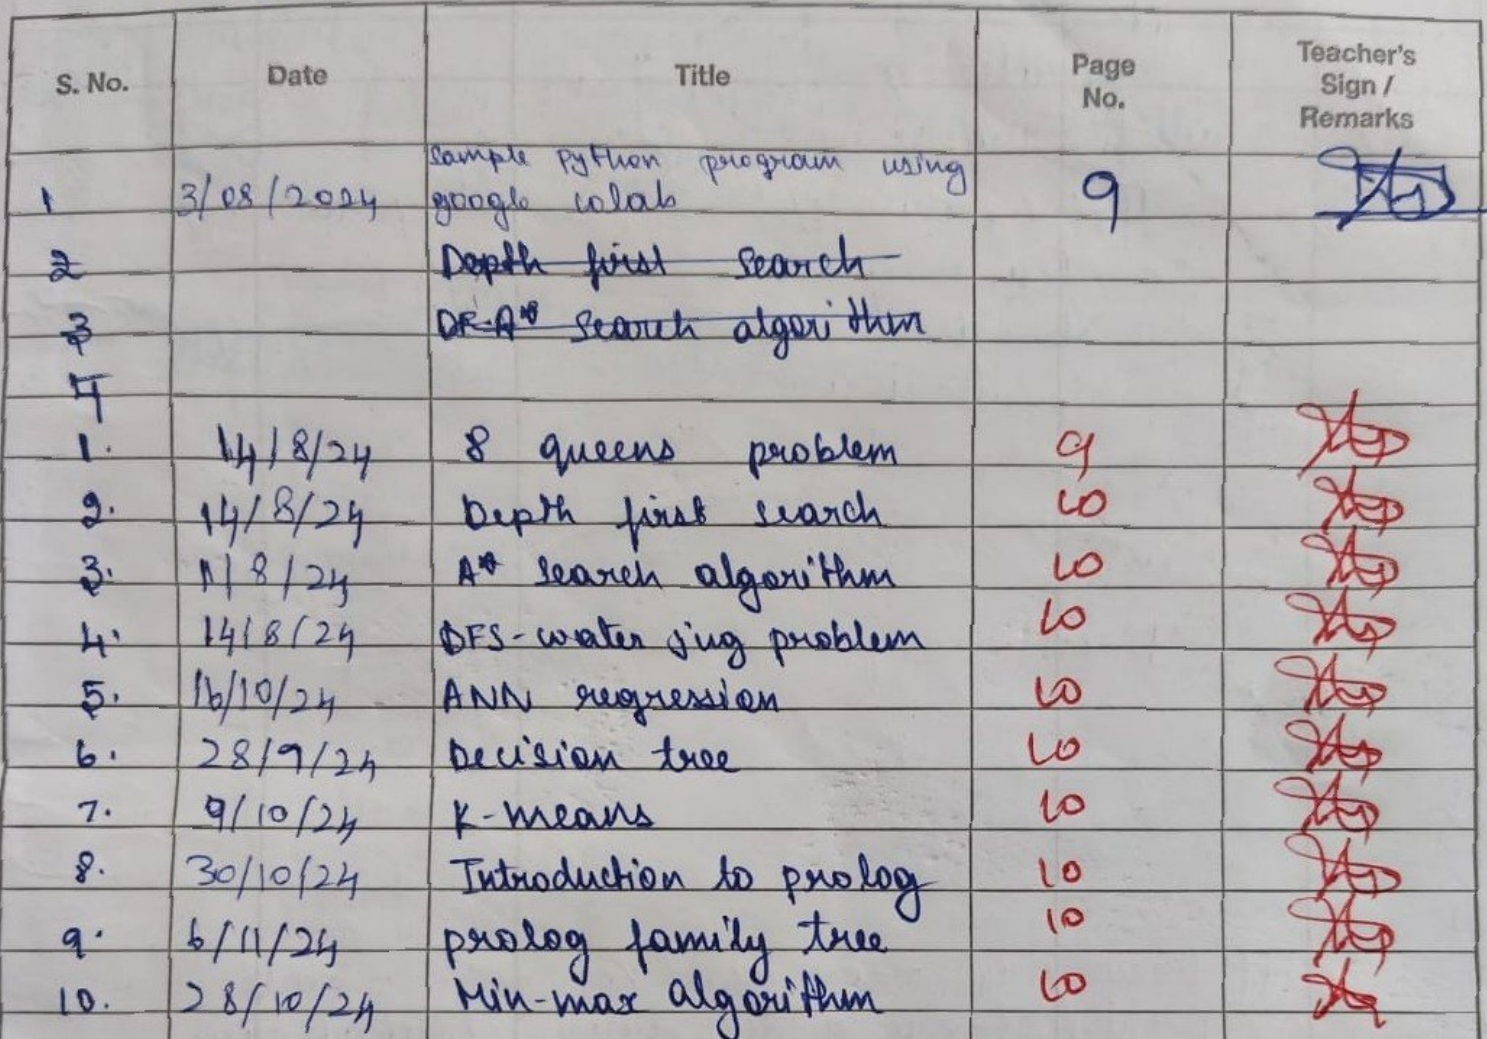 S. No. Date Title Page No. Teacher's Sign / Remarks
sample python program using
1 3/08/2024 google colab 9
2 Depth first search
3 DF-A* search algorithm
4
1. 14/8/24 8 queens problem 9
2. 14/8/24 Depth first search 10
3. 11/8/24 A* search algorithm 10
4. 14/8/24 DFS-water jug problem 10
5. 16/10/24 ANN regression 10
6. 28/9/24 Decision tree 10
7. 9/10/24 K-means 10
8. 30/10/24 Introduction to prolog 10
9. 6/11/24 prolog family tree 10
10. 28/10/24 Min-max algorithm 10